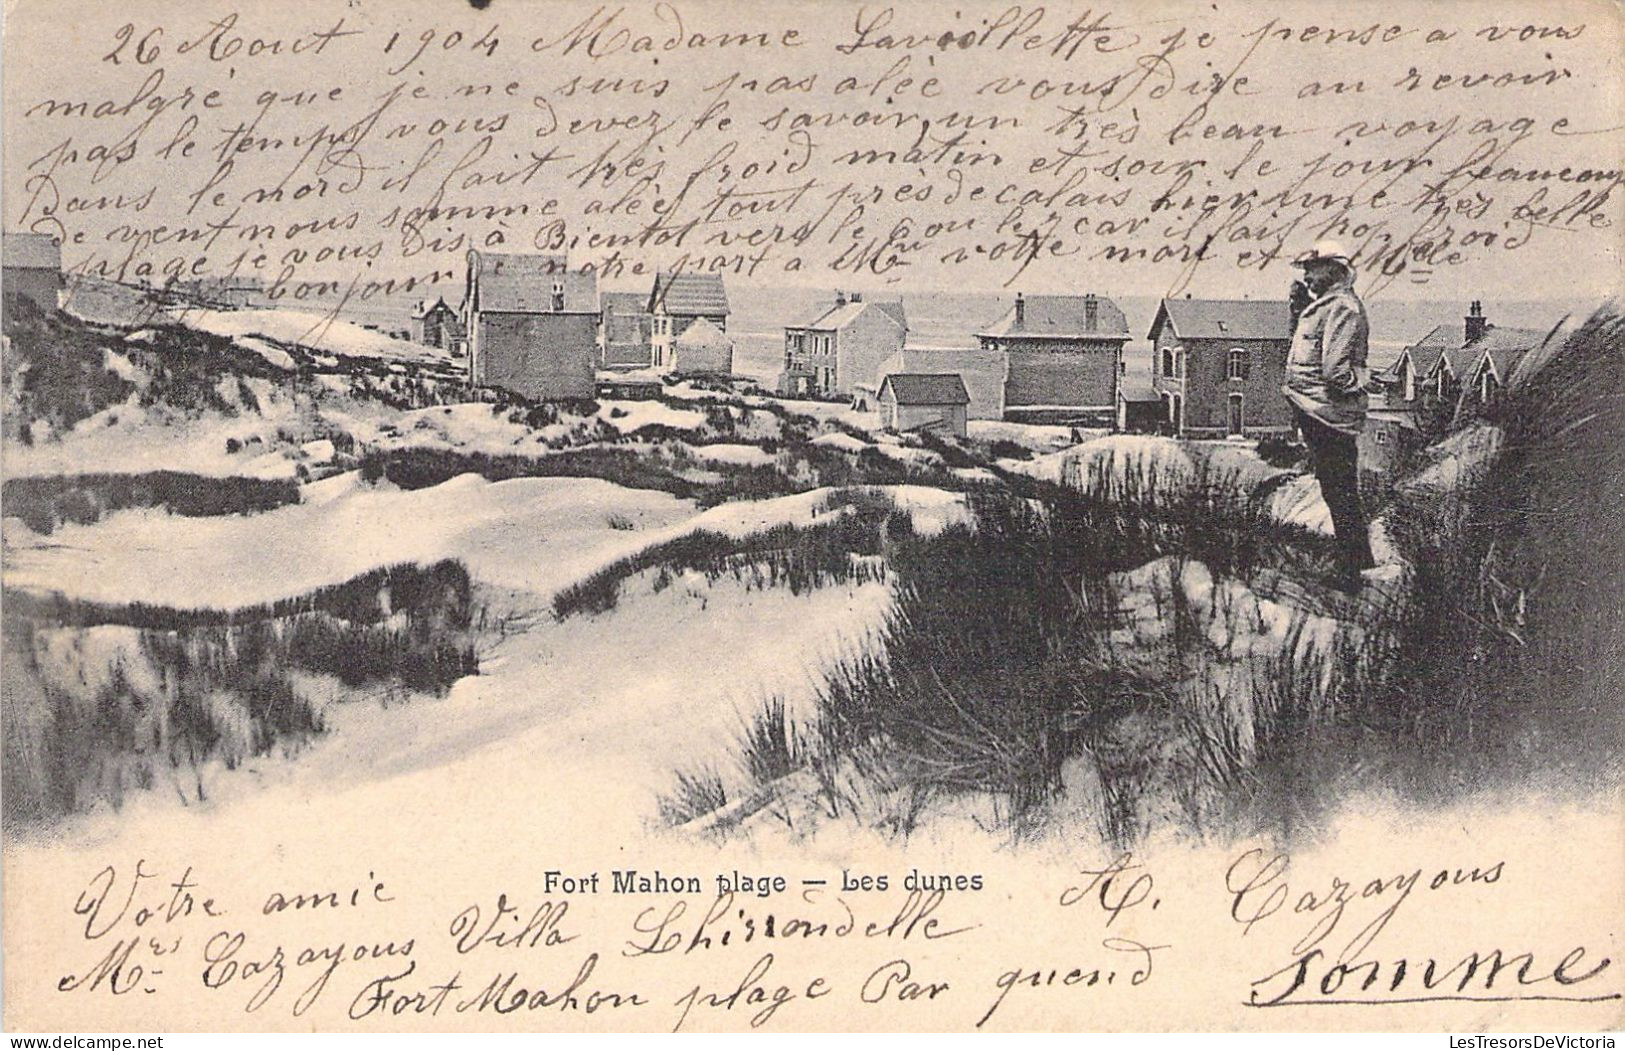 26 Aout 1904 Madame Lavoillette je pense a vous
malgré que je ne suis pas alèe vous dire au revoir
pas le temps vous devez le savoir, un très beau voyage
Dans le nord il fait très froid matin et soir le jour beaucoup
de vent nous somme alèe tout près de calais hier une très belle
plage je vous dis à Bientot vers le car il fais trop froid
bonjour de notre part a Mr votre mari et a Mlle
Fort Mahon plage — Les dunes
Votre amie A. Cazayous
Mrs Cazayous Villa Lhirrondelle
Fort Mahon plage Par quend Somme
LesTresorsDeVictoria - Delcampe.net